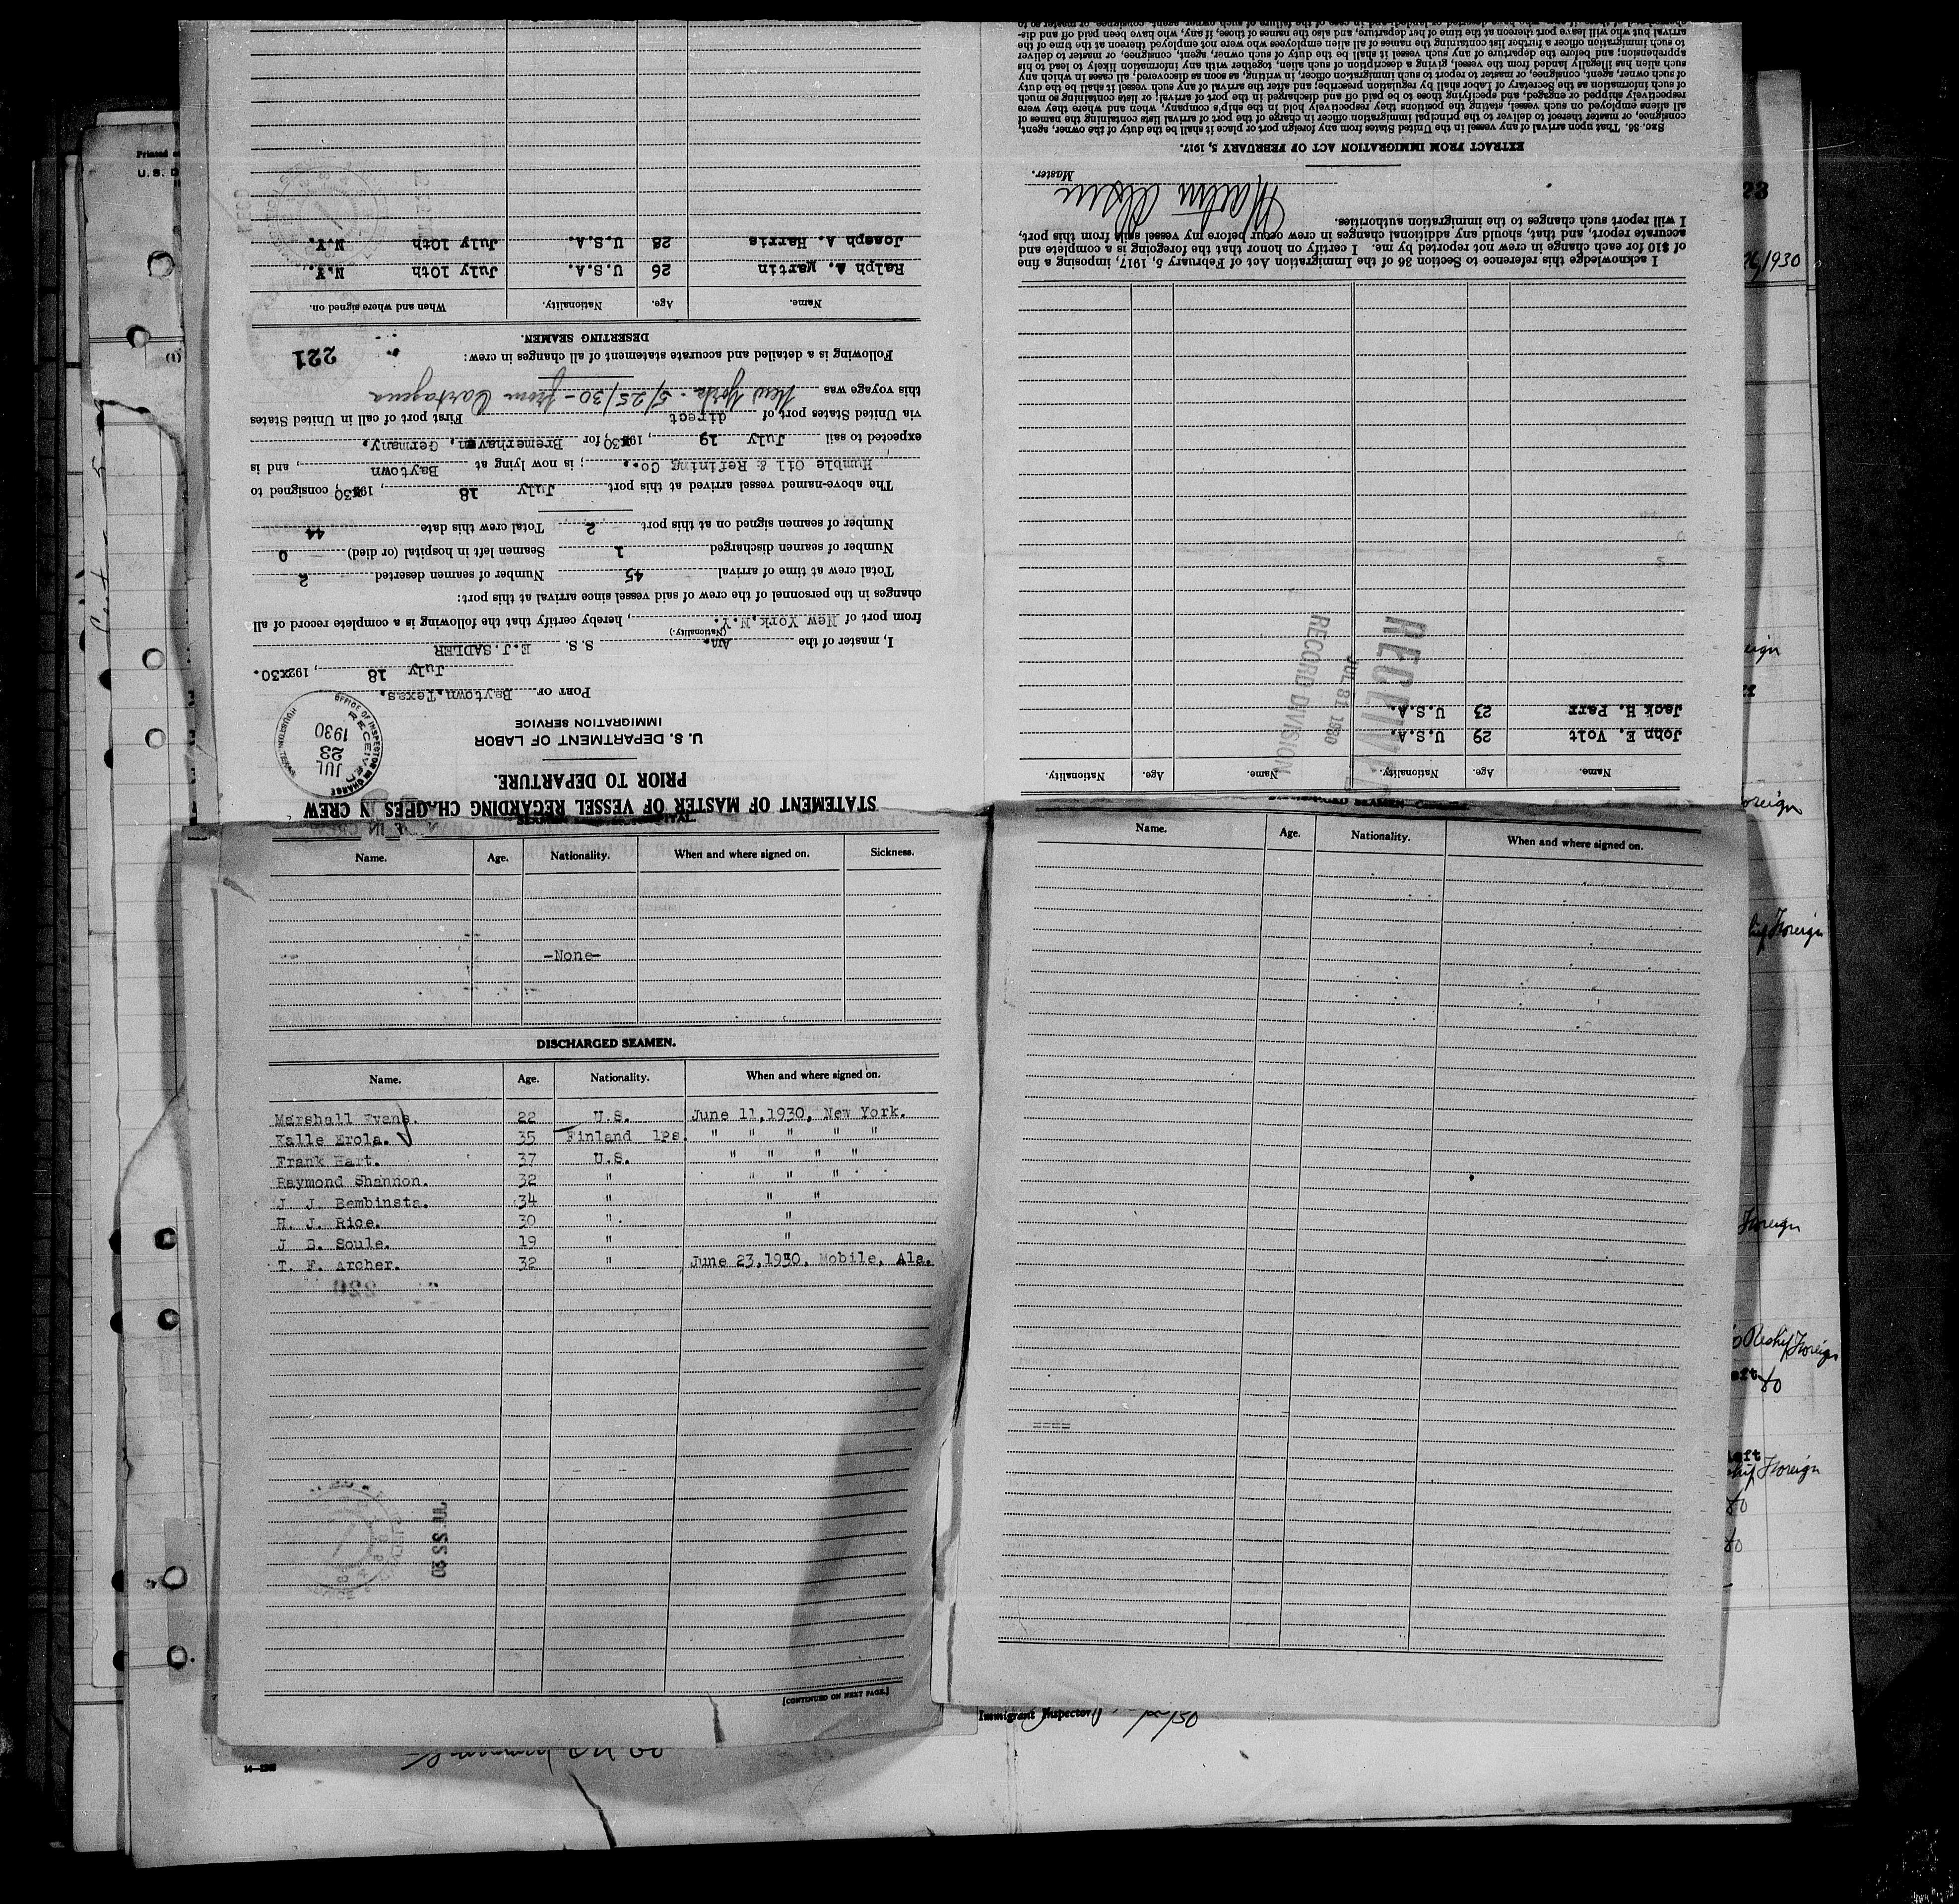 STATEMENT OF MASTER OF VESSEL REGARDING CHANGES IN CREW
PRIOR TO DEPARTURE.
U. S. DEPARTMENT OF LABOR
IMMIGRATION SERVICE
OFFICE OF INSPECTOR IN CHARGE
RECEIVED
JUL
23
1930
HOUSTON, TEXAS
PORT OF Baytown, Texas.
July 18, 192x30.
I, master of the Am. S.S. E.J. SADLER
(Nationality.)
from port of New York, N.Y., hereby certify that the following is a complete record of all
changes in the personnel of the crew of said vessel since arrival at this port:
Total crew at time of arrival 45 Number of seamen deserted 2
Number of seamen discharged 1 Seamen left in hospital (or died) 0
Number of seamen signed on at this port 2 Total crew this date 44
The above-named vessel arrived at this port July 18, 19230, consigned to
Humble Oil & Refining Co.; is now lying at Baytown, and is
expected to sail July 19, 19230, for Bremerhaven, Germany.
via United States port of direct First port of call in United States
this voyage was New York - 5/25/30 - from Cartagena
Following is a detailed and accurate statement of all changes in crew:
221
DESERTING SEAMEN.
Name. Age. Nationality. When and where signed on.
Ralph A. Martin 26 U.S.A. July 10th N.Y.
Joseph A. Harris 28 U.S.A. July 10th N.Y.
Name. Age. Nationality. Name. Age. Nationality.
John E. Volt 29 U.S.A.
Jack H. Parr 23 U.S.A.
RECEIVED
JUL 31 1930
RECORD DIVISION
I acknowledge this reference to Section 36 of the Immigration Act of February 5, 1917, imposing a fine
of $10 for each change in crew not reported by me. I certify on honor that the foregoing is a complete and
accurate report, and that, should any additional changes in crew occur before my vessel sails from this port,
I will report such changes to the immigration authorities.
Master.
EXTRACT FROM IMMIGRATION ACT OF FEBRUARY 5, 1917.
SEC. 36. That upon arrival of any vessel in the United States from any foreign port or place it shall be the duty of the owner, agent,
consignee, or master thereof to deliver to the principal immigration officer in charge of the port of arrival lists containing the names of
all aliens employed on such vessel, stating the positions they respectively hold in the ship's company, when and where they were
respectively shipped or engaged, and specifying those to be paid off and discharged in the port of arrival; or lists containing so much
of such information as the Secretary of Labor shall by regulation prescribe; and after the arrival of any such vessel it shall be the duty
of such owner, agent, consignee, or master to report to such immigration officer, in writing, as soon as discovered, all cases in which any
such alien has illegally landed from the vessel, giving a description of such alien, together with any information likely to lead to his
apprehension; and before the departure of any such vessel it shall be the duty of such owner, agent, consignee, or master to deliver
to such immigration officer a further list containing the names of all alien employees who were not employed thereon at the time of the
arrival but who will leave port thereon at the time of her departure, and also the names of those, if any, who have been paid off and dis-
Name. Age. Nationality. When and where signed on. Sickness.
-None-
DISCHARGED SEAMEN.
Name. Age. Nationality. When and where signed on.
Marshall Evans. 22 U.S. June 11,1930, New York.
Kalle Erola. 35 Finland 1Ps. " " " " "
Frank Hart. 37 U.S. " " " "
Raymond Shannon. 32 " " " "
J. J. Bembinsta. 34 " " "
H. J. Rice. 30 " "
J. B. Soule. 19 " "
T. F. Archer. 32 " June 23,1930, Mobile, Ala.
[CONTINUED ON NEXT PAGE.]
Name. Age. Nationality. When and where signed on.
====
Immigrant Inspector
Printed
U. S. D
(1)
23
1930
Foreign
Foreign
Reship Foreign
do
Foreign
do
do